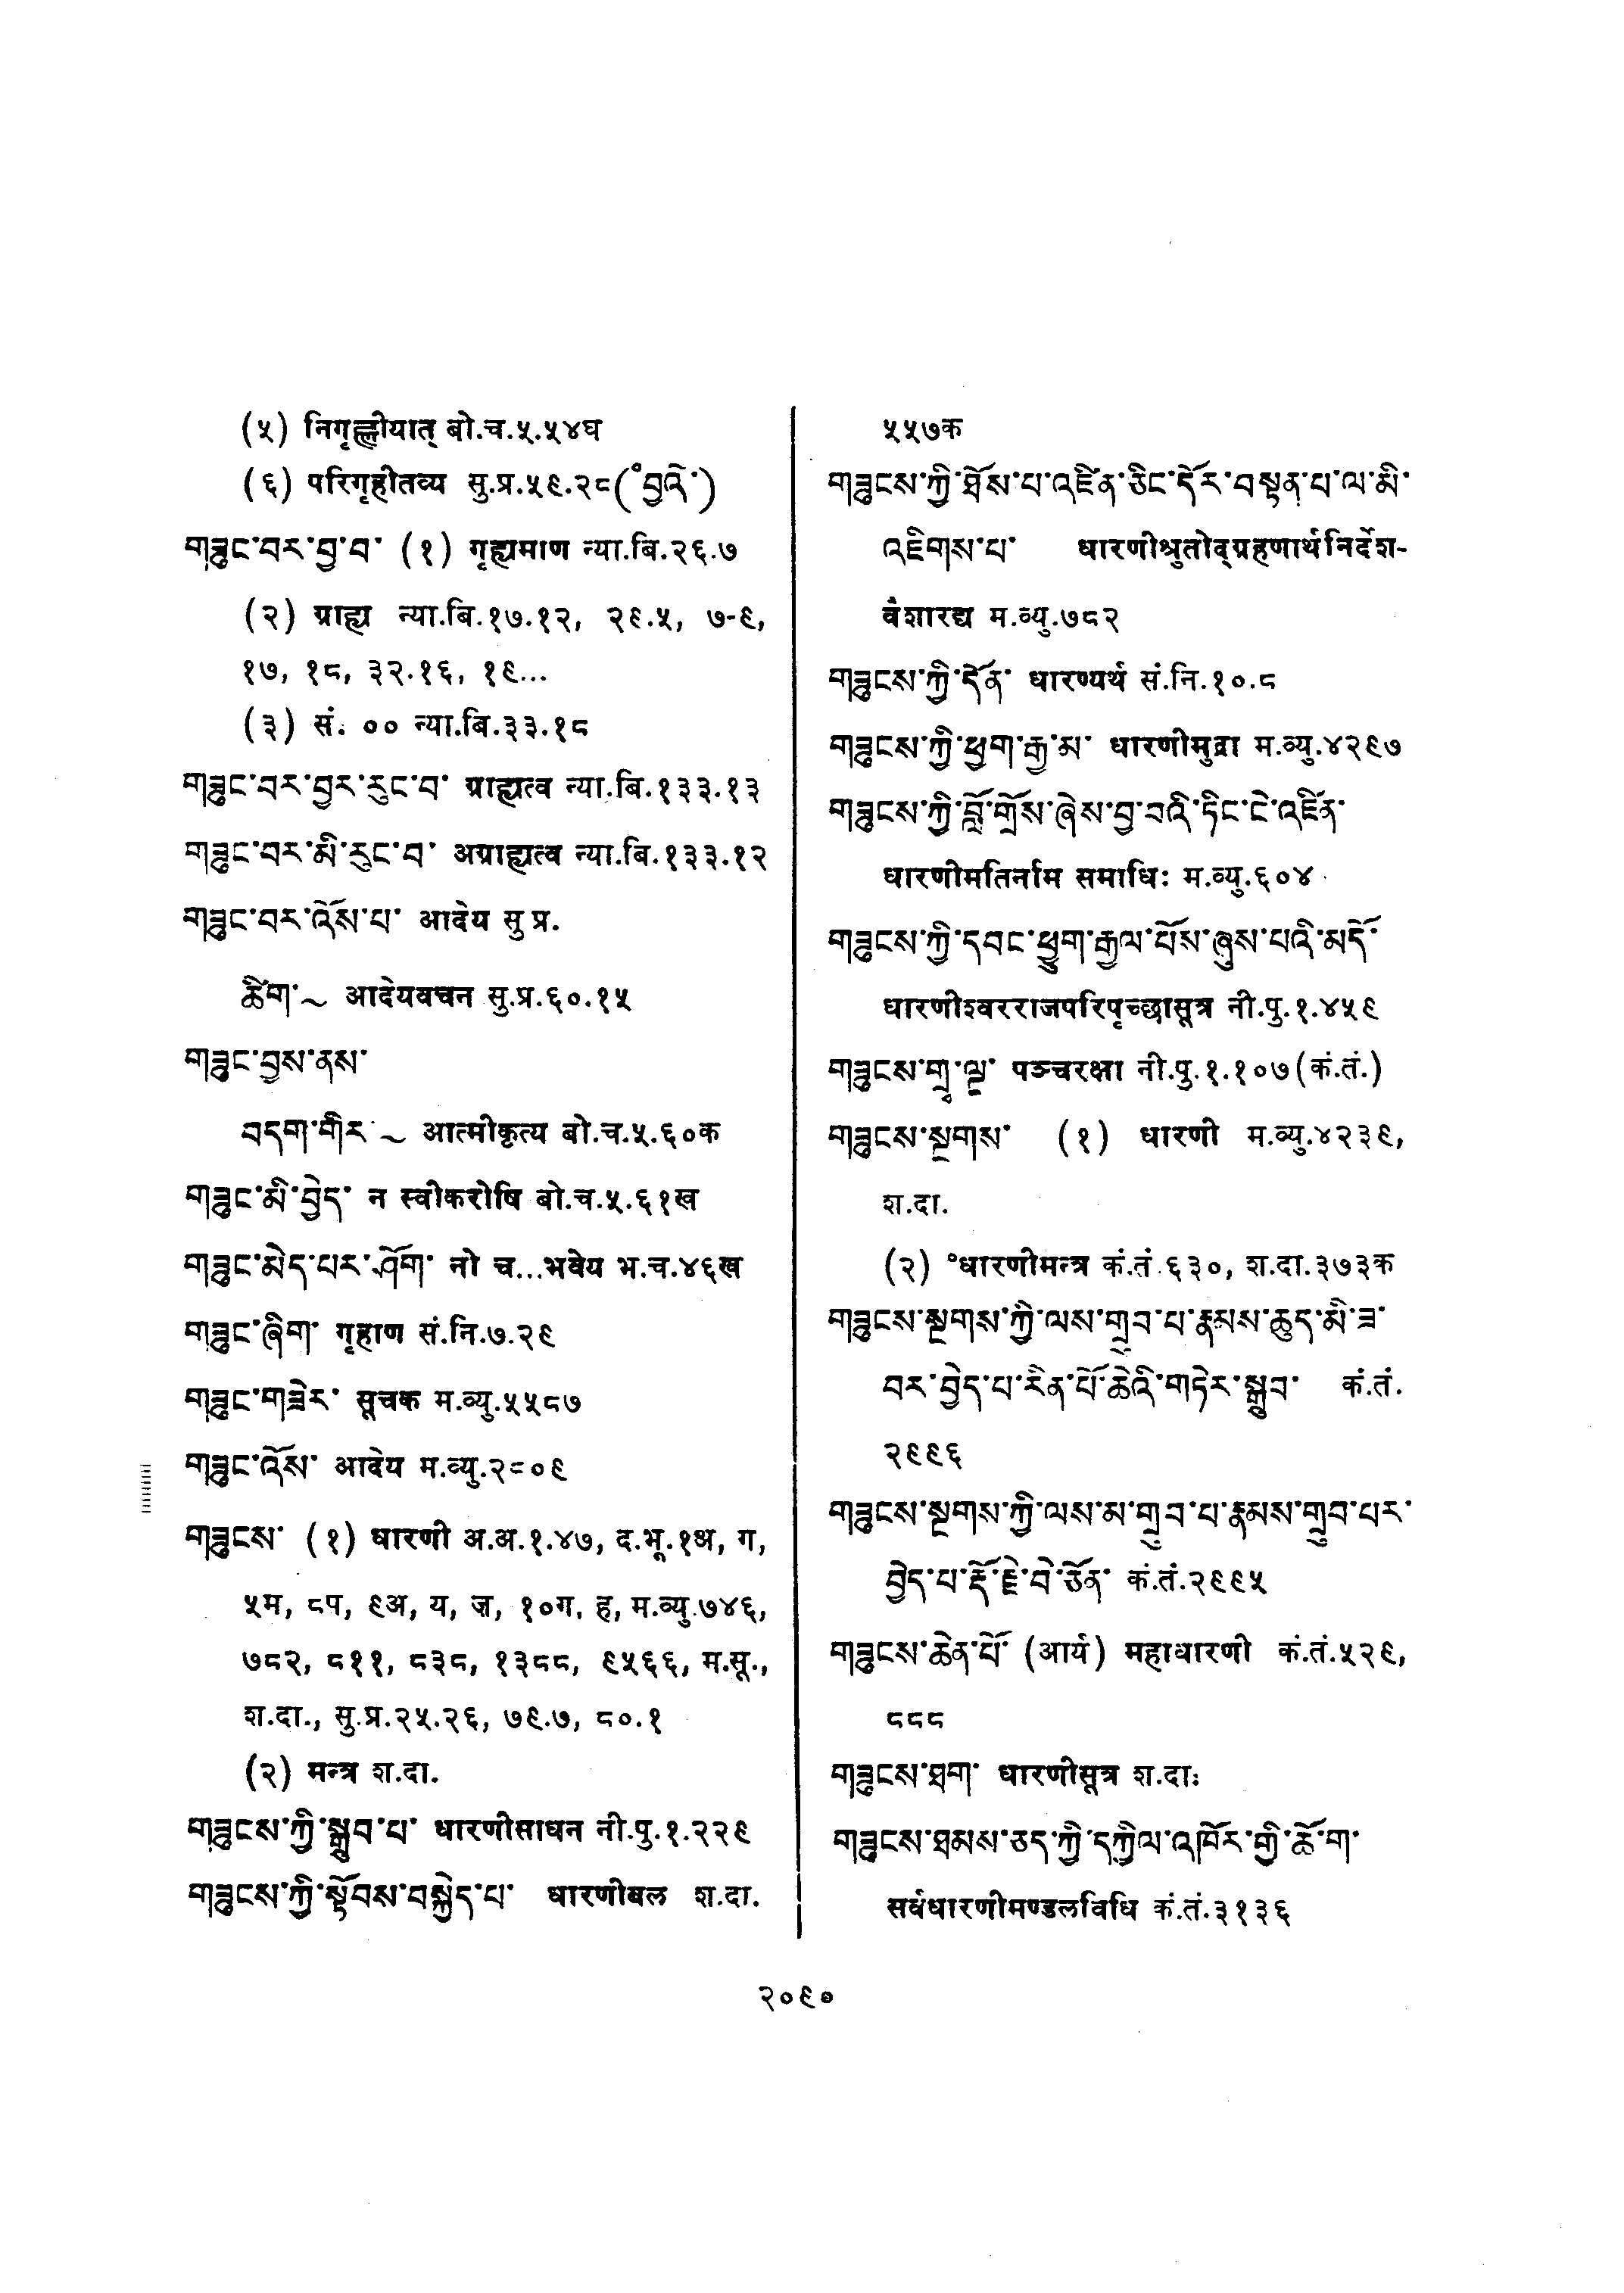 (५) निगृह्णीयात् बो.च.५.५४घ
(६) परिगृहीतव्य सु.प्र.५९.२८(°བྱའི་)
གཟུང་བར་བྱ་བ་ (१) गृह्यमाण न्या.बि.२६.७
(२) ग्राह्य न्या.बि.१७.१२, २९.५, ७-९,
१७, १८, ३२.१६, १९...
(३) सं. ०० न्या.बि.३३.१८
གཟུང་བར་བྱར་རུང་བ་ ग्राह्यत्व न्या.बि.१३३.१३
གཟུང་བར་མི་རུང་བ་ अग्राह्यत्व न्या.बि.१३३.१२
གཟུང་བར་འོས་པ་ आदेय सु प्र.
ཚིག་~ आदेयवचन सु.प्र.६०.१५
གཟུང་བྱས་ནས་
བདག་གིར་~ आत्मीकृत्य बो.च.५.६०क
གཟུང་མི་བྱེད་ न स्वीकरोषि बो.च.५.६१ख
གཟུང་མེད་པར་ཤོག་ नो च...भवेय भ.च.४६ख
གཟུང་ཞིག་ गृहाण सं.नि.७.२९
གཟུང་གཟེར་ सूचक म.व्यु.५५८७
གཟུང་འོས་ आदेय म.व्यु.२८०९
གཟུངས་ (१) धारणी अ.अ.१.४७, द.भू.१अ, ग,
५म, ८प, ९अ, य, ज्ञ, १०ग, ह, म.व्यु.७४६,
७८२, ८११, ८३८, १३८८, ९५६६, म.सू.,
श.दा., सु.प्र.२५.२६, ७९.७, ८०.१
(२) मन्त्र श.दा.
གཟུངས་ཀྱི་སྒྲུབ་པ་ धारणीसाधन नी.पु.१.२२९
གཟུངས་ཀྱི་སྟོབས་བསྐྱེད་པ་ धारणीबल श.दा.
५५७क
གཟུངས་ཀྱི་ཐོས་པ་འཛིན་ཅིང་དོར་བསྟན་པ་ལ་མི་
འཇིགས་པ་ धारणीश्रुतोद्ग्रहणार्थनिर्देश-
वैशारद्य म.व्यु.७८२
གཟུངས་ཀྱི་དོན་ धारण्यर्थ सं.नि.१०.८
གཟུངས་ཀྱི་ཕྱག་རྒྱ་མ་ धारणीमुद्रा म.व्यु.४२९७
གཟུངས་ཀྱི་བློ་གྲོས་ཞེས་བྱ་བའི་ཏིང་ངེ་འཛིན་
धारणीमतिर्नाम समाधिः म.व्यु.६०४
གཟུངས་ཀྱི་དབང་ཕྱུག་རྒྱལ་པོས་ཞུས་པའི་མདོ་
धारणीश्वरराजपरिपृच्छासूत्र नी.पु.१.४५९
གཟུངས་གྲྭ་ལྔ་ पञ्चरक्षा नी.पु.१.१०७(कं.तं.)
གཟུངས་སྔགས་ (१) धारणी म.व्यु.४२३९,
श.दा.
(२) °धारणीमन्त्र कं.तं.६३०, श.दा.३७३क
གཟུངས་སྔགས་ཀྱི་ལས་གྲུབ་པ་རྣམས་ཆུད་མི་ཟ་
བར་བྱེད་པ་རིན་པོ་ཆེའི་གཏེར་སྒྲུབ་ कं.तं.
२९९६
གཟུངས་སྔགས་ཀྱི་ལས་མ་གྲུབ་པ་རྣམས་གྲུབ་པར་
བྱེད་པ་རྡོ་རྗེ་བེ་ཅོན་ कं.तं.२९९५
གཟུངས་ཆེན་པོ་ (आर्य) महाधारणी कं.तं.५२९,
८८८
གཟུངས་ཐག་ धारणीसूत्र श.दा:
གཟུངས་ཐམས་ཅད་ཀྱི་དཀྱིལ་འཁོར་གྱི་ཆོ་ག་
सर्वधारणीमण्डलविधि कं.तं.३१३६
२०९०